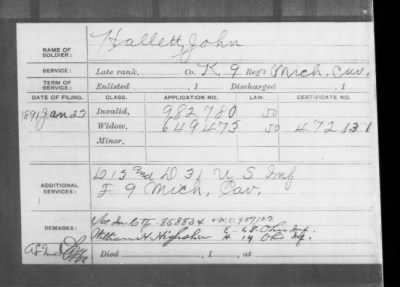 NAME OF SOLDIER: Hallett, John
SERVICE: Late rank, Co. K 9 Reg't Mich. Cav.
TERM OF SERVICE: Enlisted , 1 Discharged , 1
DATE OF FILING. CLASS. APPLICATION NO. LAW. CERTIFICATE NO.
1891 Jan 23 Invalid, 982 780
Widow, 649 475 472 131
Minor,
ADDITIONAL SERVICES: D 15 and D 31 U S Inf
F 9 Mich. Cav.
REMARKS: 858834
William H. E - 68 Ohio Inf.
H 14 Ohio Inf.
Died , 1 , at